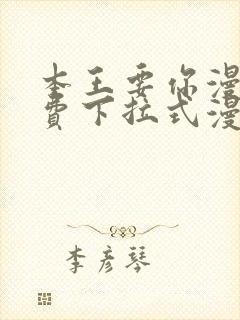 本王要你漫
費下拉式漫
李彦琴